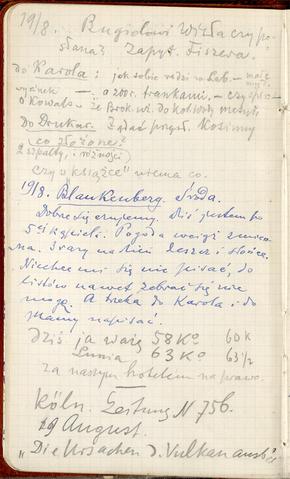 19/8. Rugiolowi Wisła czy po-
słana? Zapyt. Fiszera.
do Karola: jak sobie radzi w Lab. — moje
wycinek — a 200 r. frankami. — czy
o Kowals
Do Drukar. Żądać przysł. Kosimy
(co złożone?
2 szpalty, i różności)
Czy o „książce" niema co.
19/8. Blankenberg. Środa.
Dobrze się czujemy. Dziś jestem po
5tej kąpieli. Pogoda wciąż zmien
na. 3 razy na dzień deszcz i słońce.
Niechce mi się nic pisać, do
listów nawet zebrać się nie
mogę. A trzeba do Karola i do
Mamy napisać.
Dziś ja ważę 58 Ko 60 k
Lunia 63 Ko 63 1/2
za naszym hotelem na prawo.
Köln. Zeitung N 756.
19 August.
„Die Ursachen d. Vulkanausb